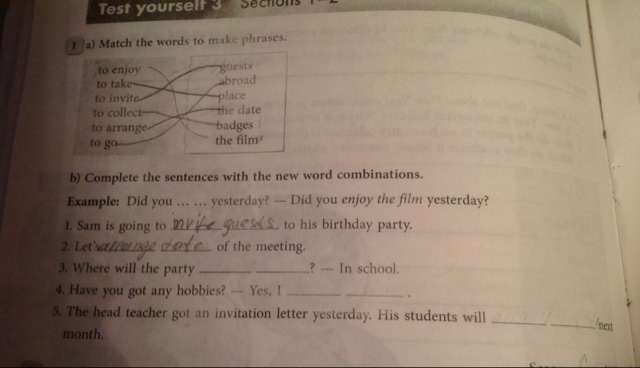 Test yourself 3 Sections 1–2
1 a) Match the words to make phrases.
to enjoy guests
to take abroad
to invite place
to collect the date
to arrange badges
to go the film
b) Complete the sentences with the new word combinations.
Example: Did you ... ... yesterday? — Did you enjoy the film yesterday?
1. Sam is going to invite guests to his birthday party.
2. Let's arrange date of the meeting.
3. Where will the party ________ ________? — In school.
4. Have you got any hobbies? — Yes, I ________ ________.
5. The head teacher got an invitation letter yesterday. His students will ________ ________ next
month.